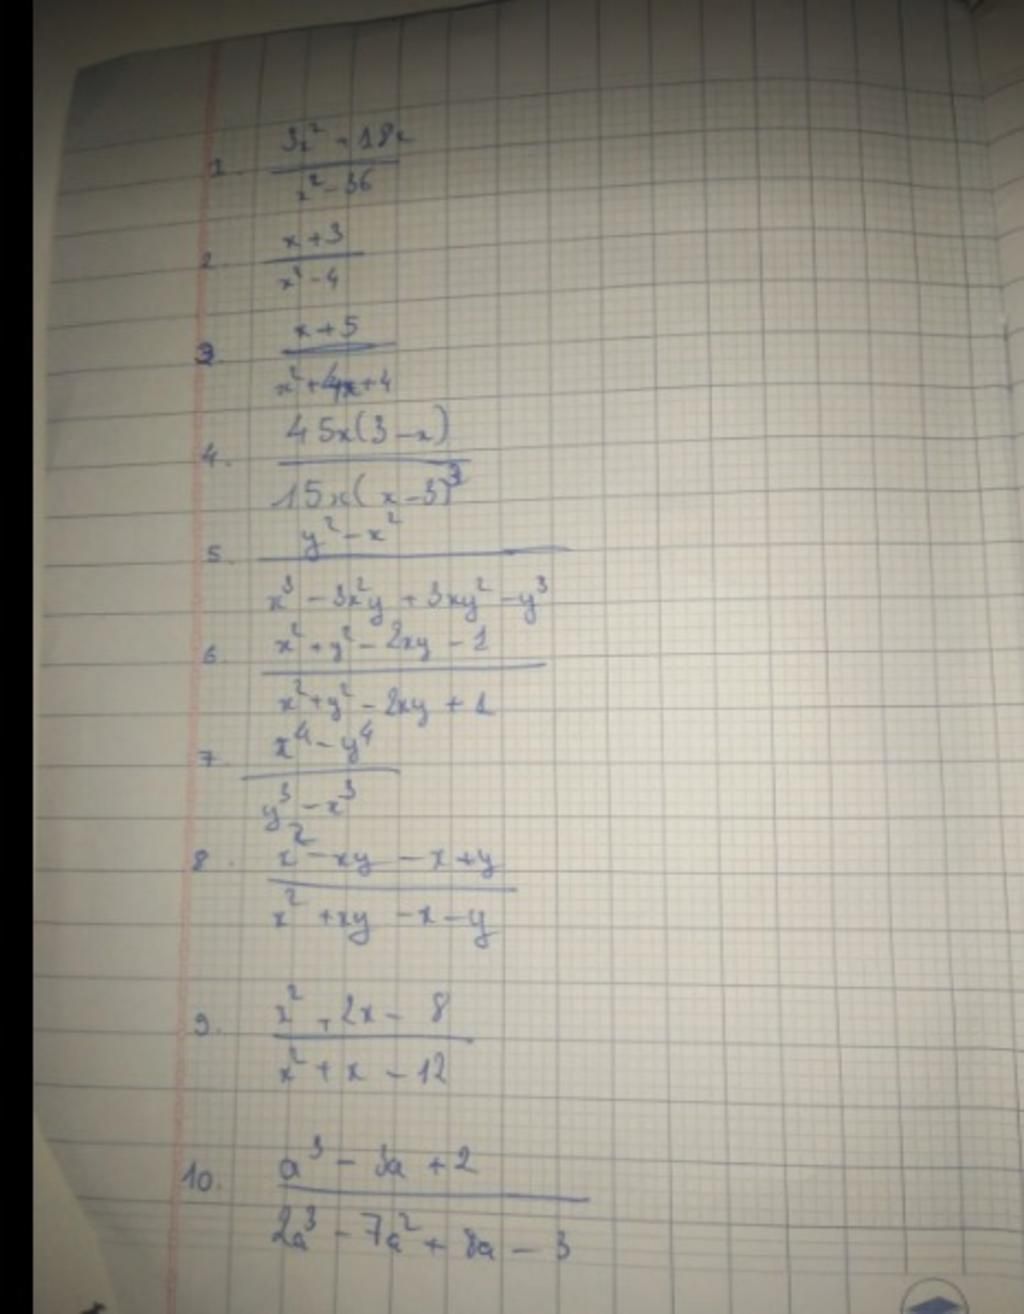 1. 3x² - 18x
x² - 36
2. x + 3
x² - 4
3. x + 5
x² + 4x + 4
4. 45x(3 - x)
15x(x - 3)³
5. y² - x²
x³ - 3x²y + 3xy² - y³
6. x² + y² - 2xy - 1
x² + y² - 2xy + 1
7. x⁴ - y⁴
y³ - x³
8. x² - xy - x + y
x² + xy - x - y
9. x² + 2x - 8
x² + x - 12
10. a³ - 3a + 2
2a³ - 7a² + 8a - 3